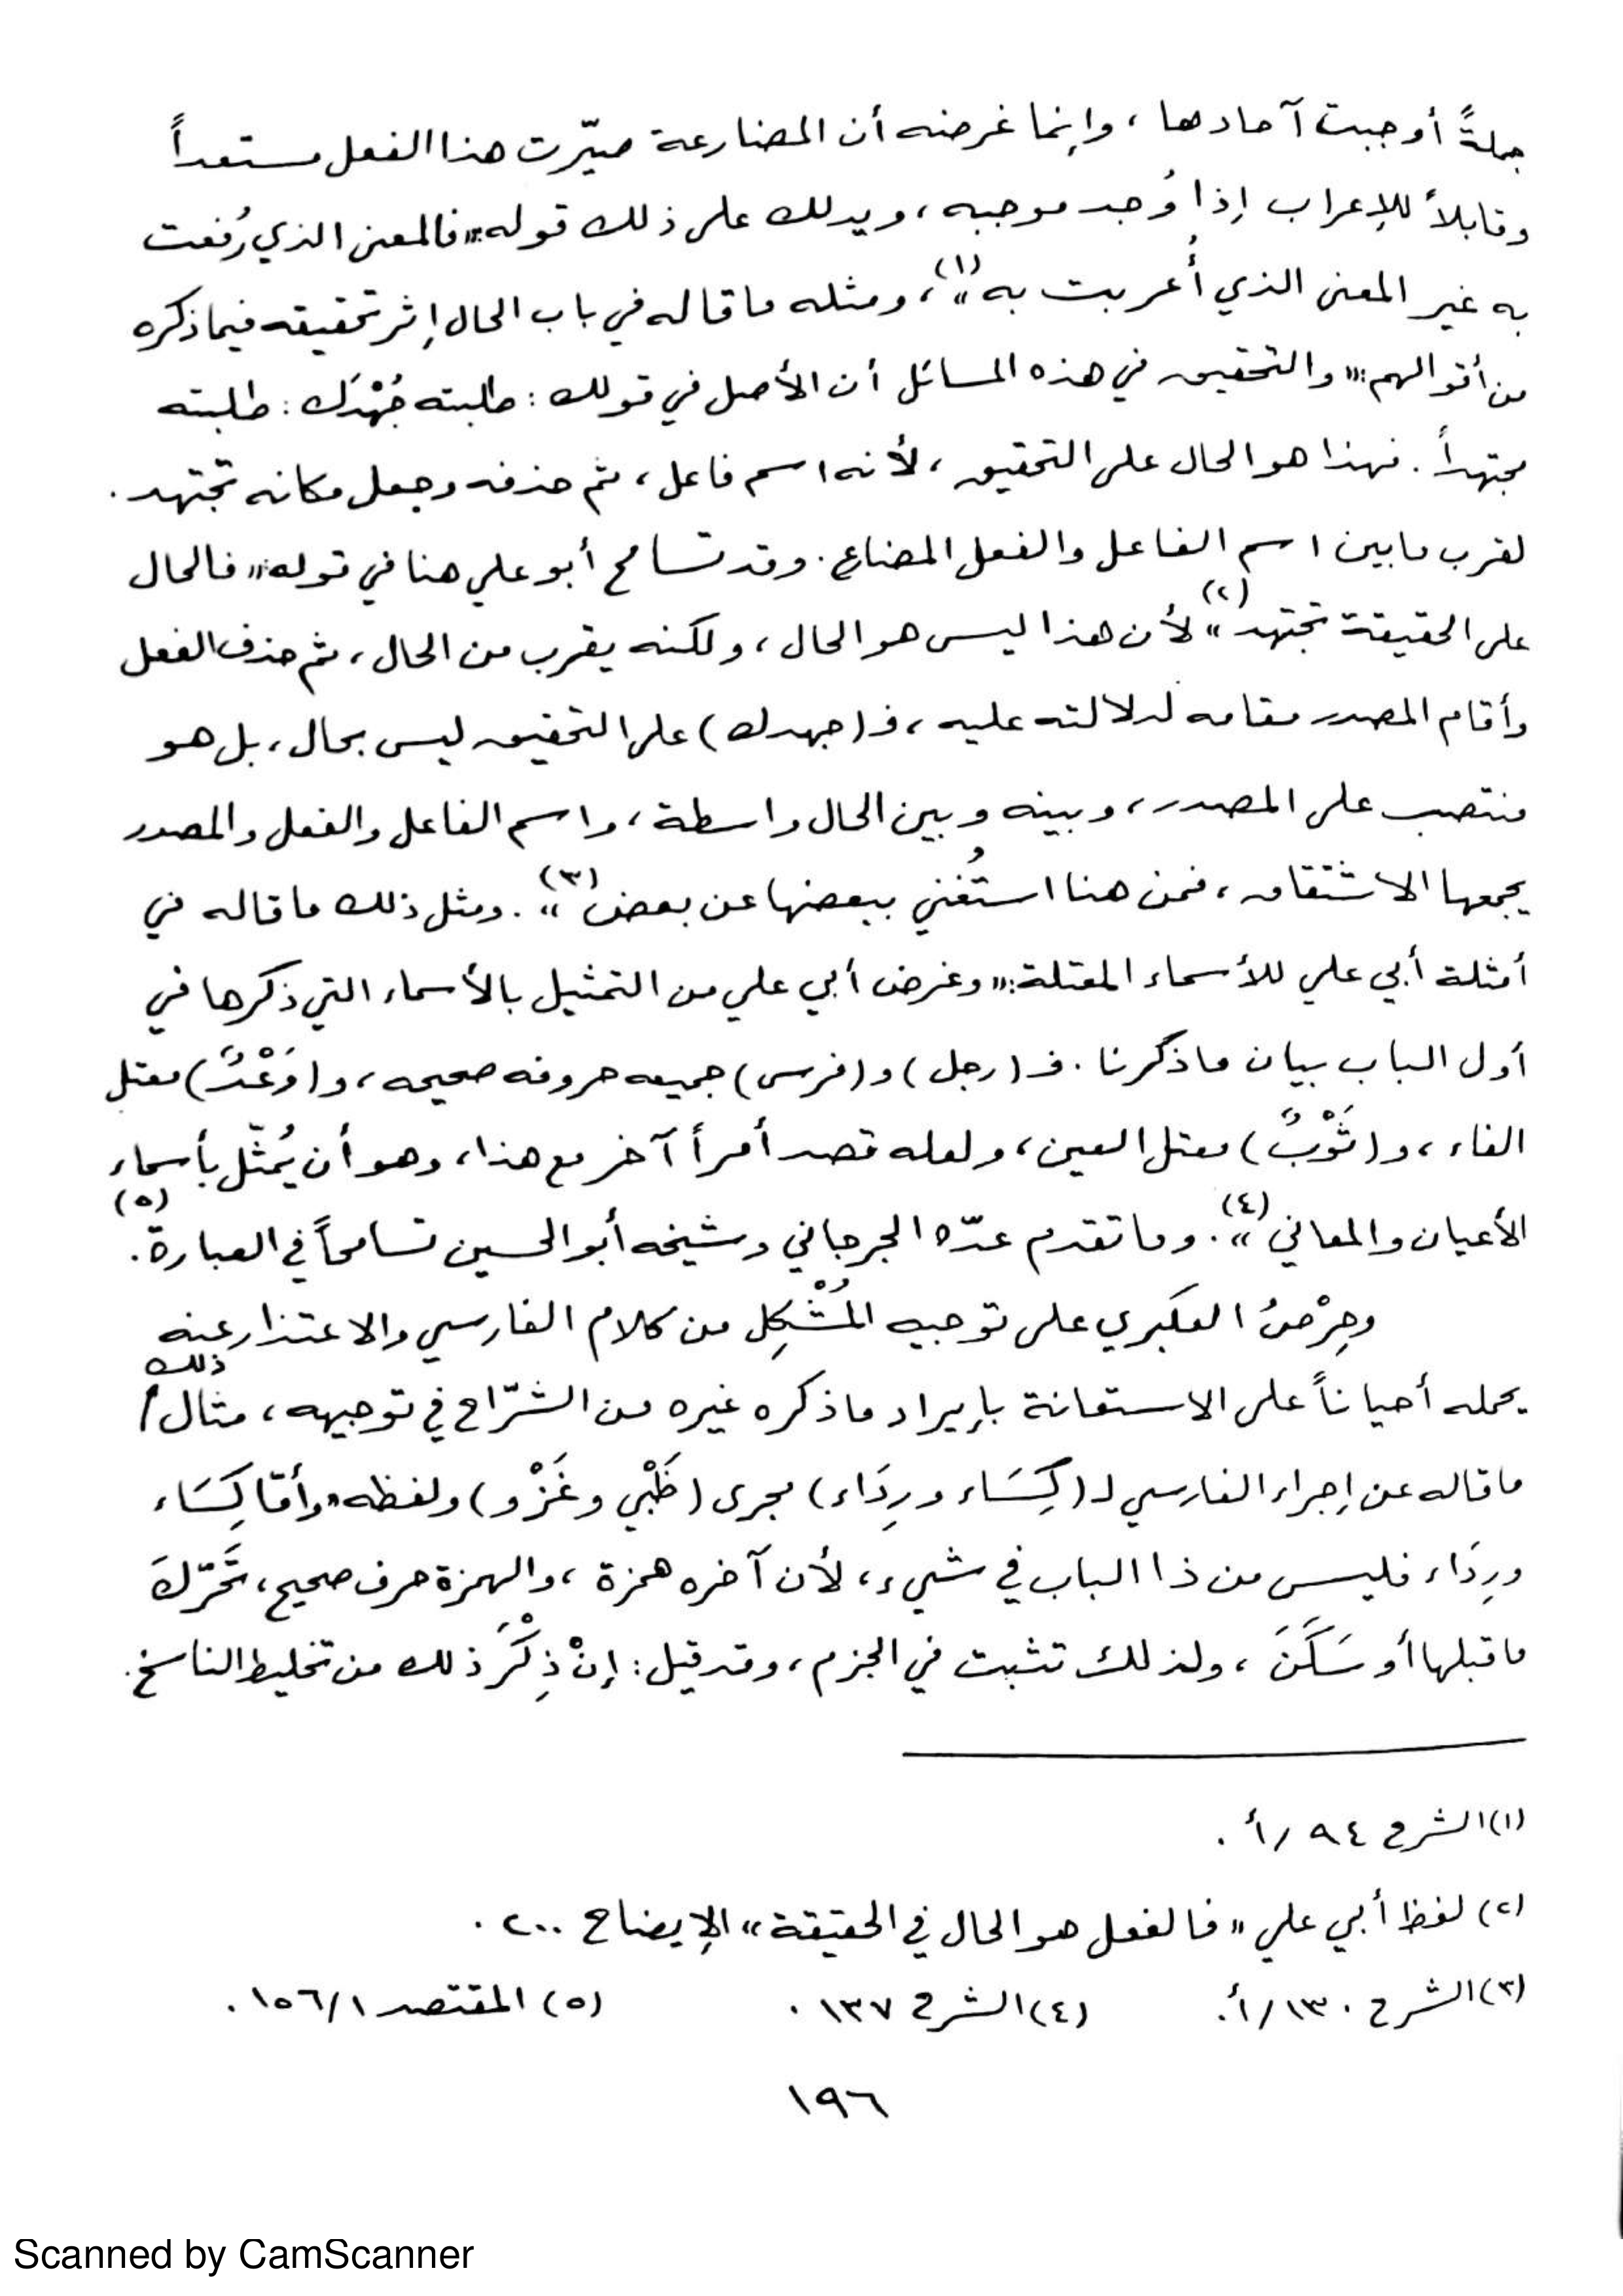 جملةً أوجبت آحادها، وإنما غرضه أن المضارعة صيّرت هذا الفعل مستعداً
وقابلاً للإعراب إذا وُجد موجبه، ويدلك على ذلك قوله: «فالمعنى الذي رُفعت
به غير المعنى الذي أُعربت به»(١)، ومثله ما قاله في باب الحال إثر تحقيقه فيما ذكره
من أقوالهم: «والتحقيق في هذه المسائل أن الأصل في قولك: طلبته جُهْدَك: طلبته
مجتهداً. فهذا هو الحال على التحقيق، لأنه اسم فاعل، ثم حذفه وجعل مكانه تجتهد.
لقرب ما بين اسم الفاعل والفعل المضارع. وقد تسامح أبو علي هنا في قوله: «فالحال
على الحقيقة تجتهد»(٢) لأن هذا ليس هو الحال، ولكنه يقرب من الحال، ثم حذف الفعل
وأقام المصدر مقامه لدلالته عليه، فـ(جهدك) على التحقيق ليس بحال، بل هو
منتصب على المصدر، وبينه وبين الحال واسطة، واسم الفاعل والفعل والمصدر
يجمعها الاشتقاق، فمن هنا استُغني ببعضها عن بعض»(٣). ومثل ذلك ما قاله في
أمثلة أبي علي للأسماء المعتلة: «وغرض أبي علي من التمثيل بالأسماء التي ذكرها في
أول الباب بيان ما ذكرنا. فـ(رجل) و(فرس) جميعه حروفه صحيحه، و(وَعْدٌ) معتل
الفاء، و(ثَوْبٌ) معتل العين، ولعله قصد أمراً آخر مع هذا، وهو أن يُمثّل بأسماء
الأعيان والمعاني»(٤). وما تقدم عدّه الجرجاني وشيخه أبو الحسين تسامحاً في العبارة(٥).
وحِرْصُ العكبري على توجيه المُشْكِل من كلام الفارسي والاعتذار عنه
يحمله أحياناً على الاستعانة بإيراد ما ذكره غيره من الشرّاح في توجيهه، مثال ذلك
ما قاله عن إجراء الفارسي لـ(كِسَاء ورِدَاء) مجرى (ظَبْي وغَزْو) ولفظه «وأمّا كِسَاء
ورِدَاء فليس من ذا الباب في شيء، لأن آخره همزة، والهمزة حرف صحيح، تَحَرّكَ
ما قبلها أو سَكَنَ، ولذلك تثبت في الجزم، وقد قيل: إنْ ذِكْرَ ذلك من تخليط الناسخ.
(١) الشرح ٩٤/أ.
(٢) لفظ أبي علي «فالفعل هو الحال في الحقيقة» الإيضاح ٢٠٠.
(٣) الشرح ١٣٠/أ. (٤) الشرح ١٣٧. (٥) المقتصد ١٥٦/١.
١٩٦
Scanned by CamScanner